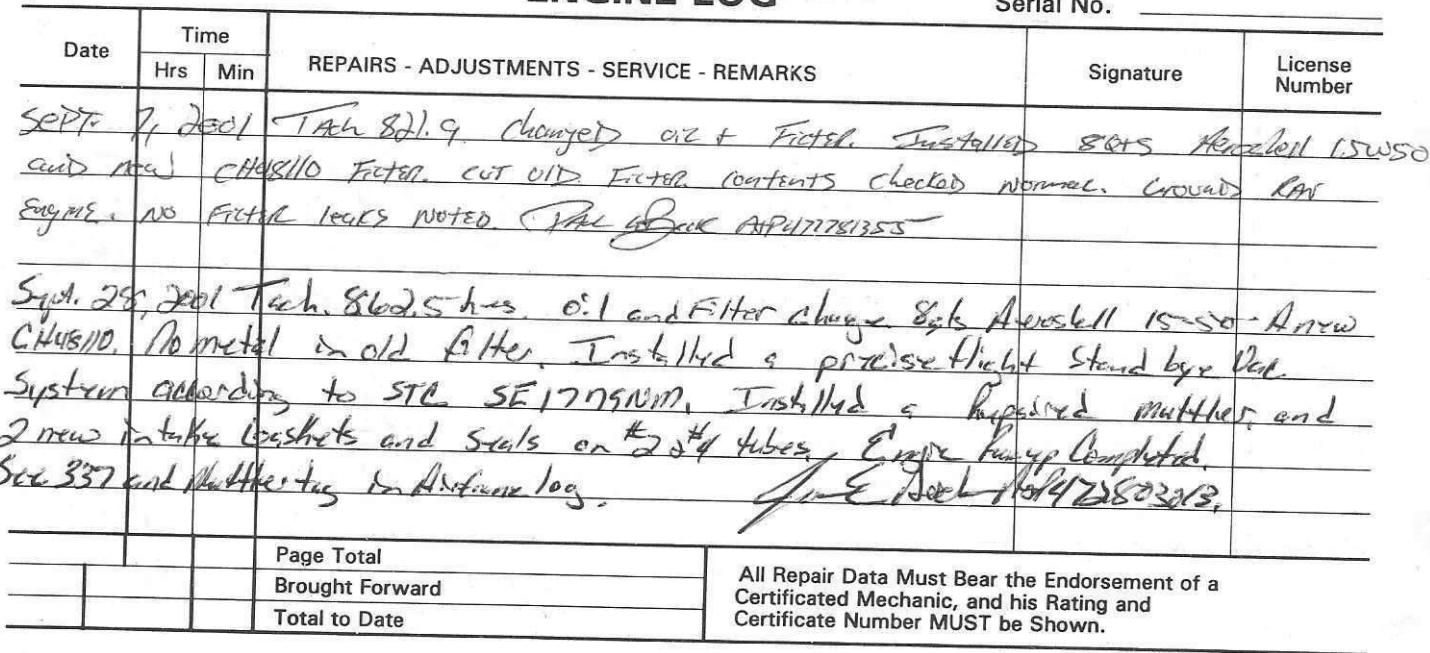 ENGINE LOG
Serial No.
Date
Time
Hrs
Min
REPAIRS - ADJUSTMENTS - SERVICE - REMARKS
Signature
License
Number
SEPT. 7, 2001 TAch 821.9 ChangeD oiL + FiLTER. InstallED 8 QtS Aeroshell 15W50
anD new CH48110 FiLTER. CUT OlD FiLTER. Contents CheckeD Normal. GrounD RAN
EngINE. No FiLTER leaks NotED. AP477781355
Sept. 28, 2001 Tach. 862.5 hrs. Oil and Filter change 8qts Aeroshell 15-50 - A new
CH48110. No metal in old filter. Installed a precise flight Stand bye Vac.
System according to STC SE1779NM. Installed a Repaired muffler, and
2 new intake Gaskets and Seals on #2 #4 tubes. Engine Runup Completed.
See 337 and Muffler tag in Airframe log.
Page Total
Brought Forward
Total to Date
All Repair Data Must Bear the Endorsement of a
Certificated Mechanic, and his Rating and
Certificate Number MUST be Shown.